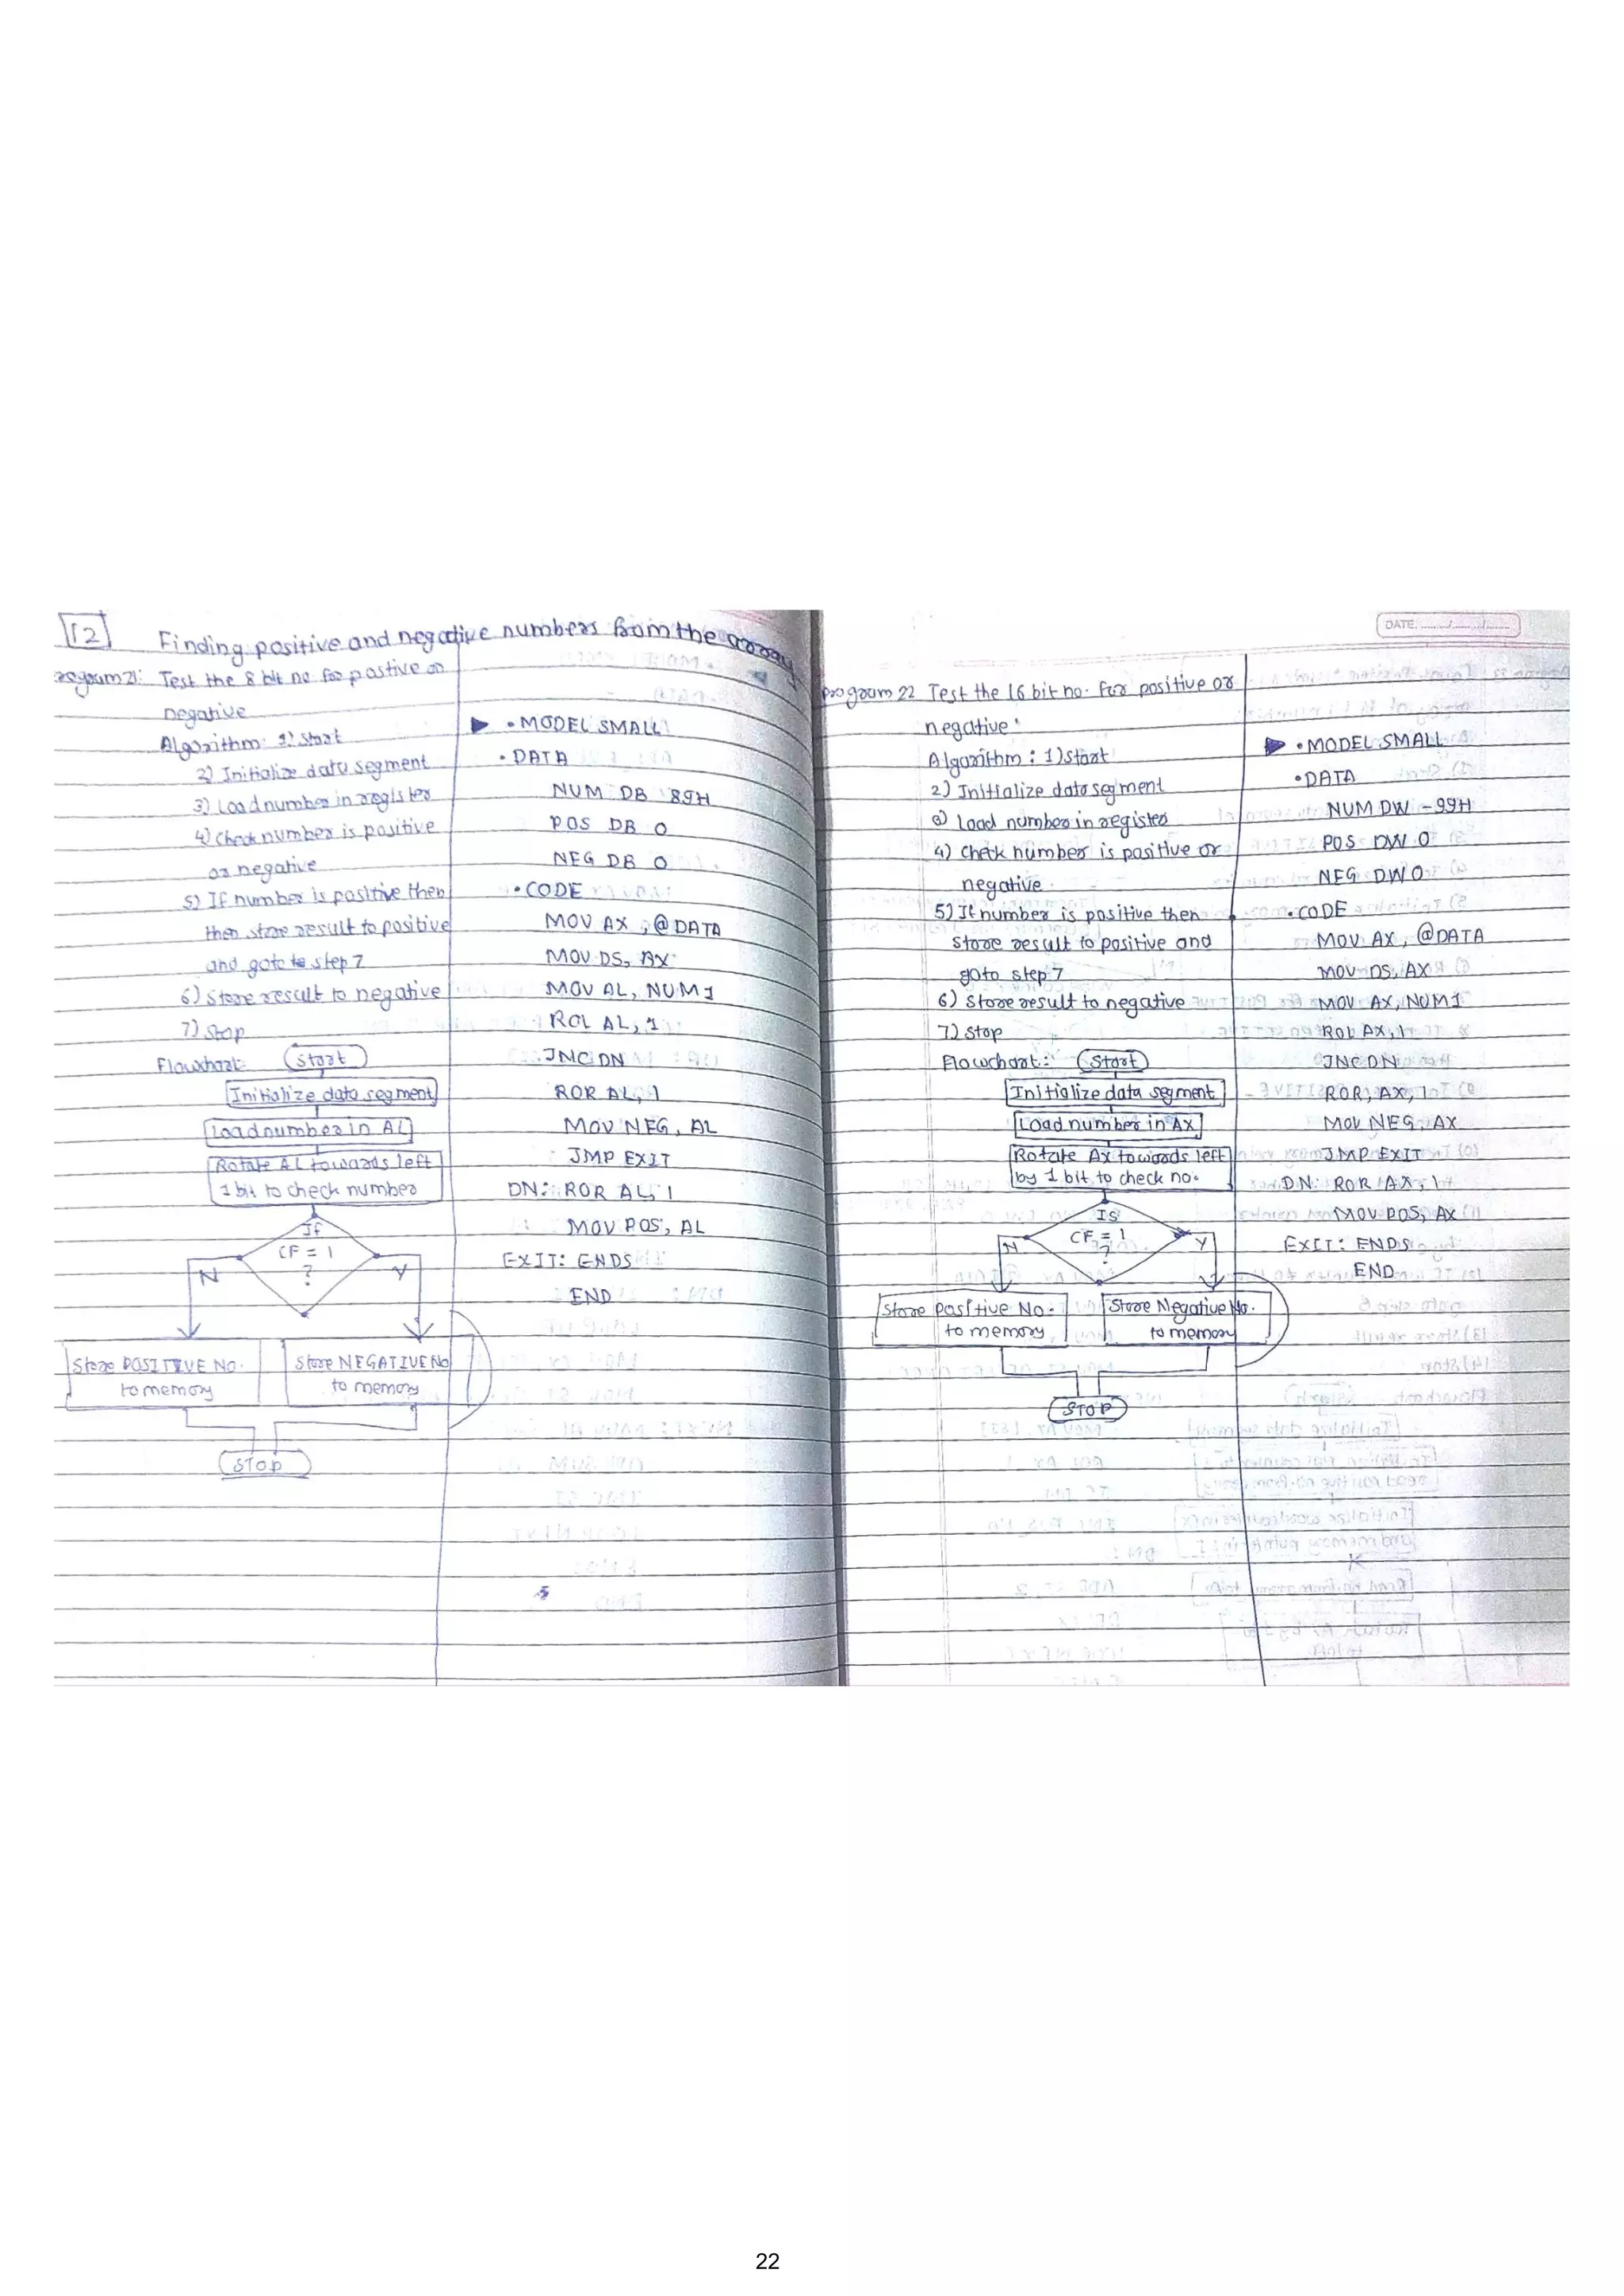 12 Finding positive and negative numbers from the array
rogram 21: Test the 8 bit no for postive or
negative
Algorithm: 1) Start
2) Initialize data segment
3) Load number in register
4) Check number is positive
or negative
5) If number is positive then
then store result to positive
and goto to step 7
6) Store result to negative
7) Stop
Flowchart:
Start
Initialize data segment
Load number in AL
Rotate AL towards left
1 bit to check number
If
CF = 1
?
N
Y
Store POSITIVE No.
to memory
Store NEGATIVE No
to memory
STOP
.MODEL SMALL
.DATA
NUM DB 89H
POS DB 0
NEG DB 0
.CODE
MOV AX, @DATA
MOV DS, AX
MOV AL, NUM1
ROL AL, 1
JNC DN
ROR AL, 1
MOV NEG, AL
JMP EXIT
DN: ROR AL, 1
MOV POS, AL
EXIT: ENDS
END
DATE:
program 22 Test the 16 bit no. for positive or
negative
Algorithm: 1) Start
2) Initialize data segment
3) Load number in register
4) Check number is positive or
negative
5) If number is positive then
store result to positive and
goto step 7
6) Store result to negative
7) Stop
Flowchart:
Start
Initialize data segment
Load number in AX
Rotate AX towards left
by 1 bit to check no.
IS
CF = 1
?
N
Y
Store Positive No.
to memory
Store Negative No.
to memory
STOP
.MODEL SMALL
.DATA
NUM DW -99H
POS DW 0
NEG DW 0
.CODE
MOV AX, @DATA
MOV DS, AX
MOV AX, NUM1
ROL AX, 1
JNC DN
ROR, AX, 1
MOV NEG, AX
JMP EXIT
DN: ROR AX, 1
MOV POS, AX
EXIT: ENDS
END
22